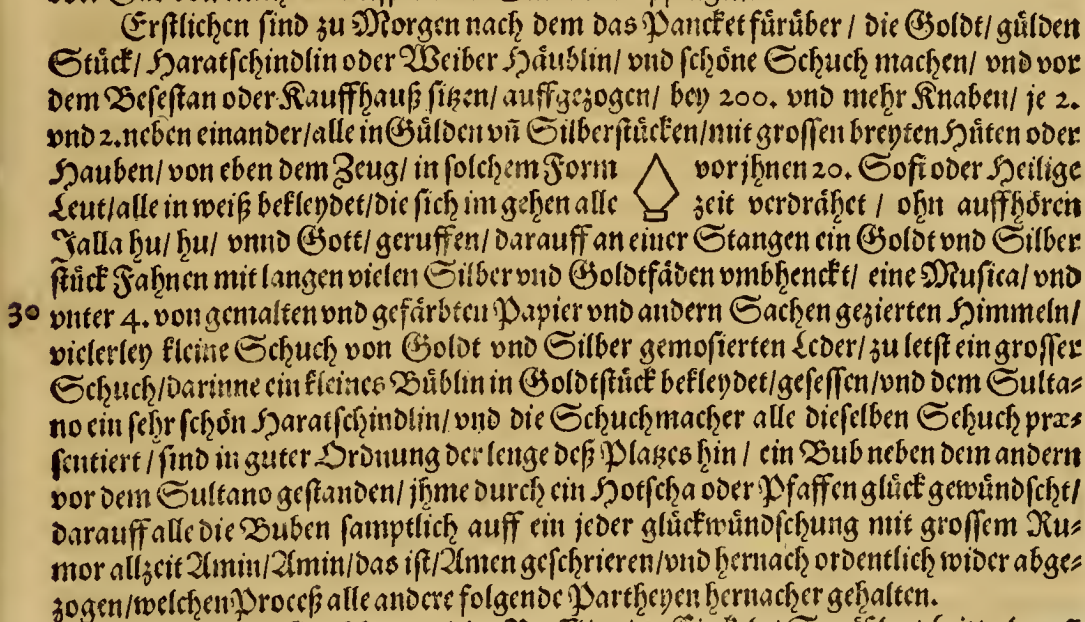 Erstlichen sind zu Morgen nach dem das Pancket fürüber / die Goldt/ gülden
Stück/ Haratschindlin oder Weiber Häublin/ vnd schöne Schuch machen/ vnd vor
dem Besestan oder Kauffhauß sitzen/ auffgezogen/ bey 200. vnd mehr Knaben/ je 2.
vnd 2. neben einander/ alle in Gülden vñ Silberstücken/ mit grossen breyten Hüten oder
Hauben/ von eben dem Zeug/ in solchem Form vor jhnen 20. Sofi oder Heilige
Leut/ alle in weiß bekleydet/ die sich im gehen alle zeit verdrähet / ohn auffhören
Jalla hu/ hu/ vnnd Gott/ geruffen/ darauff an einer Stangen ein Goldt vnd Silber
stück Fahnen mit langen vielen Silber vnd Goldtfäden vmbhenckt/ eine Musica/ vnd
30 vnter 4. von gemalten vnd gefärbten Papier vnd andern Sachen gezierten Himmeln/
vielerley kleine Schuch von Goldt vnd Silber gemosierten Leder/ zu letst ein grosser
Schuch/ darinne ein kleines Büblin in Goldtstück bekleydet/ gesessen/ vnd dem Sulta⸗
no ein sehr schön Haratschindlin/ vnd die Schuchmacher alle dieselben Schuch præ⸗
sentiert / sind in guter Ordnung der lenge deß Platzes hin / ein Bub neben dem andern
vor dem Sultano gestanden/ jhme durch ein Hotscha oder Pfaffen glück gewündscht/
darauff alle die Buben samptlich auff ein jeder glückwündschung mit grossem Ru⸗
mor allzeit Amin/ Amin/ das ist/ Amen geschrieren/ vnd hernach ordentlich wider abge⸗
zogen/ welchen Proceß alle andere folgende Partheyen hernacher gehalten.